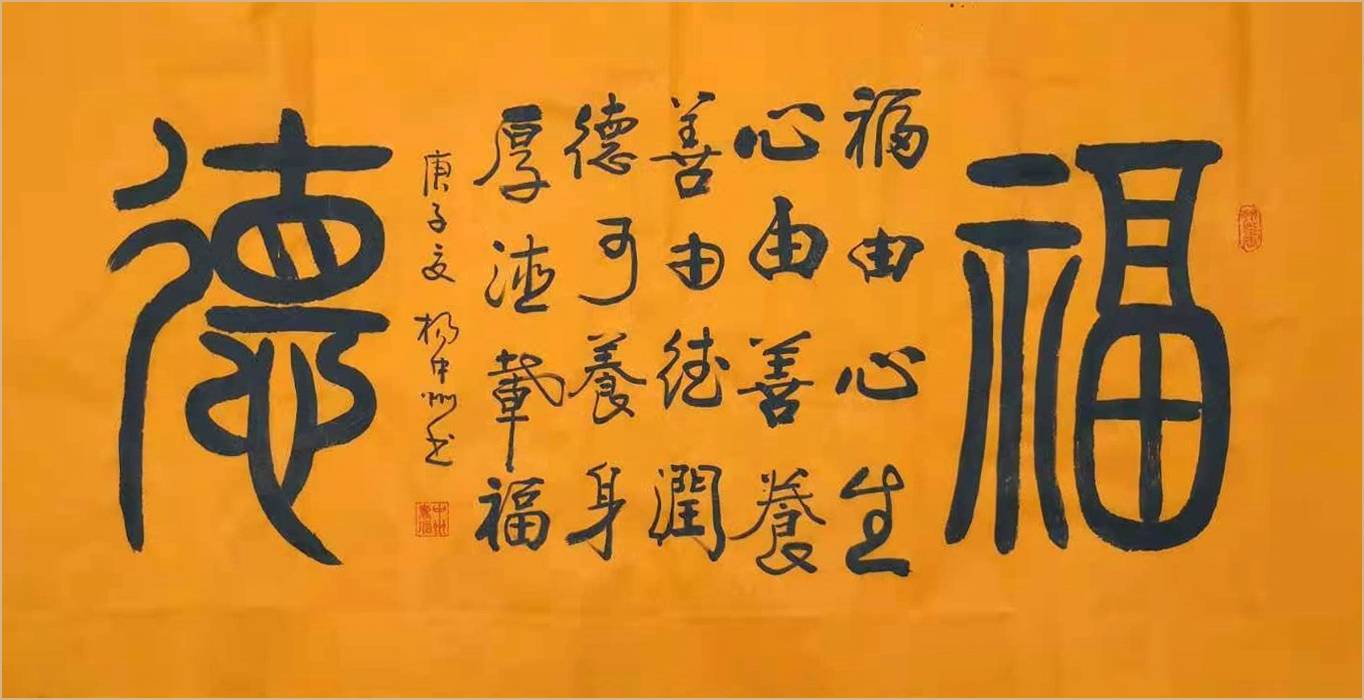 福
福由心生
心由善養
善由德潤
德可養身
厚德載福
庚子夏 楊中洲書
德